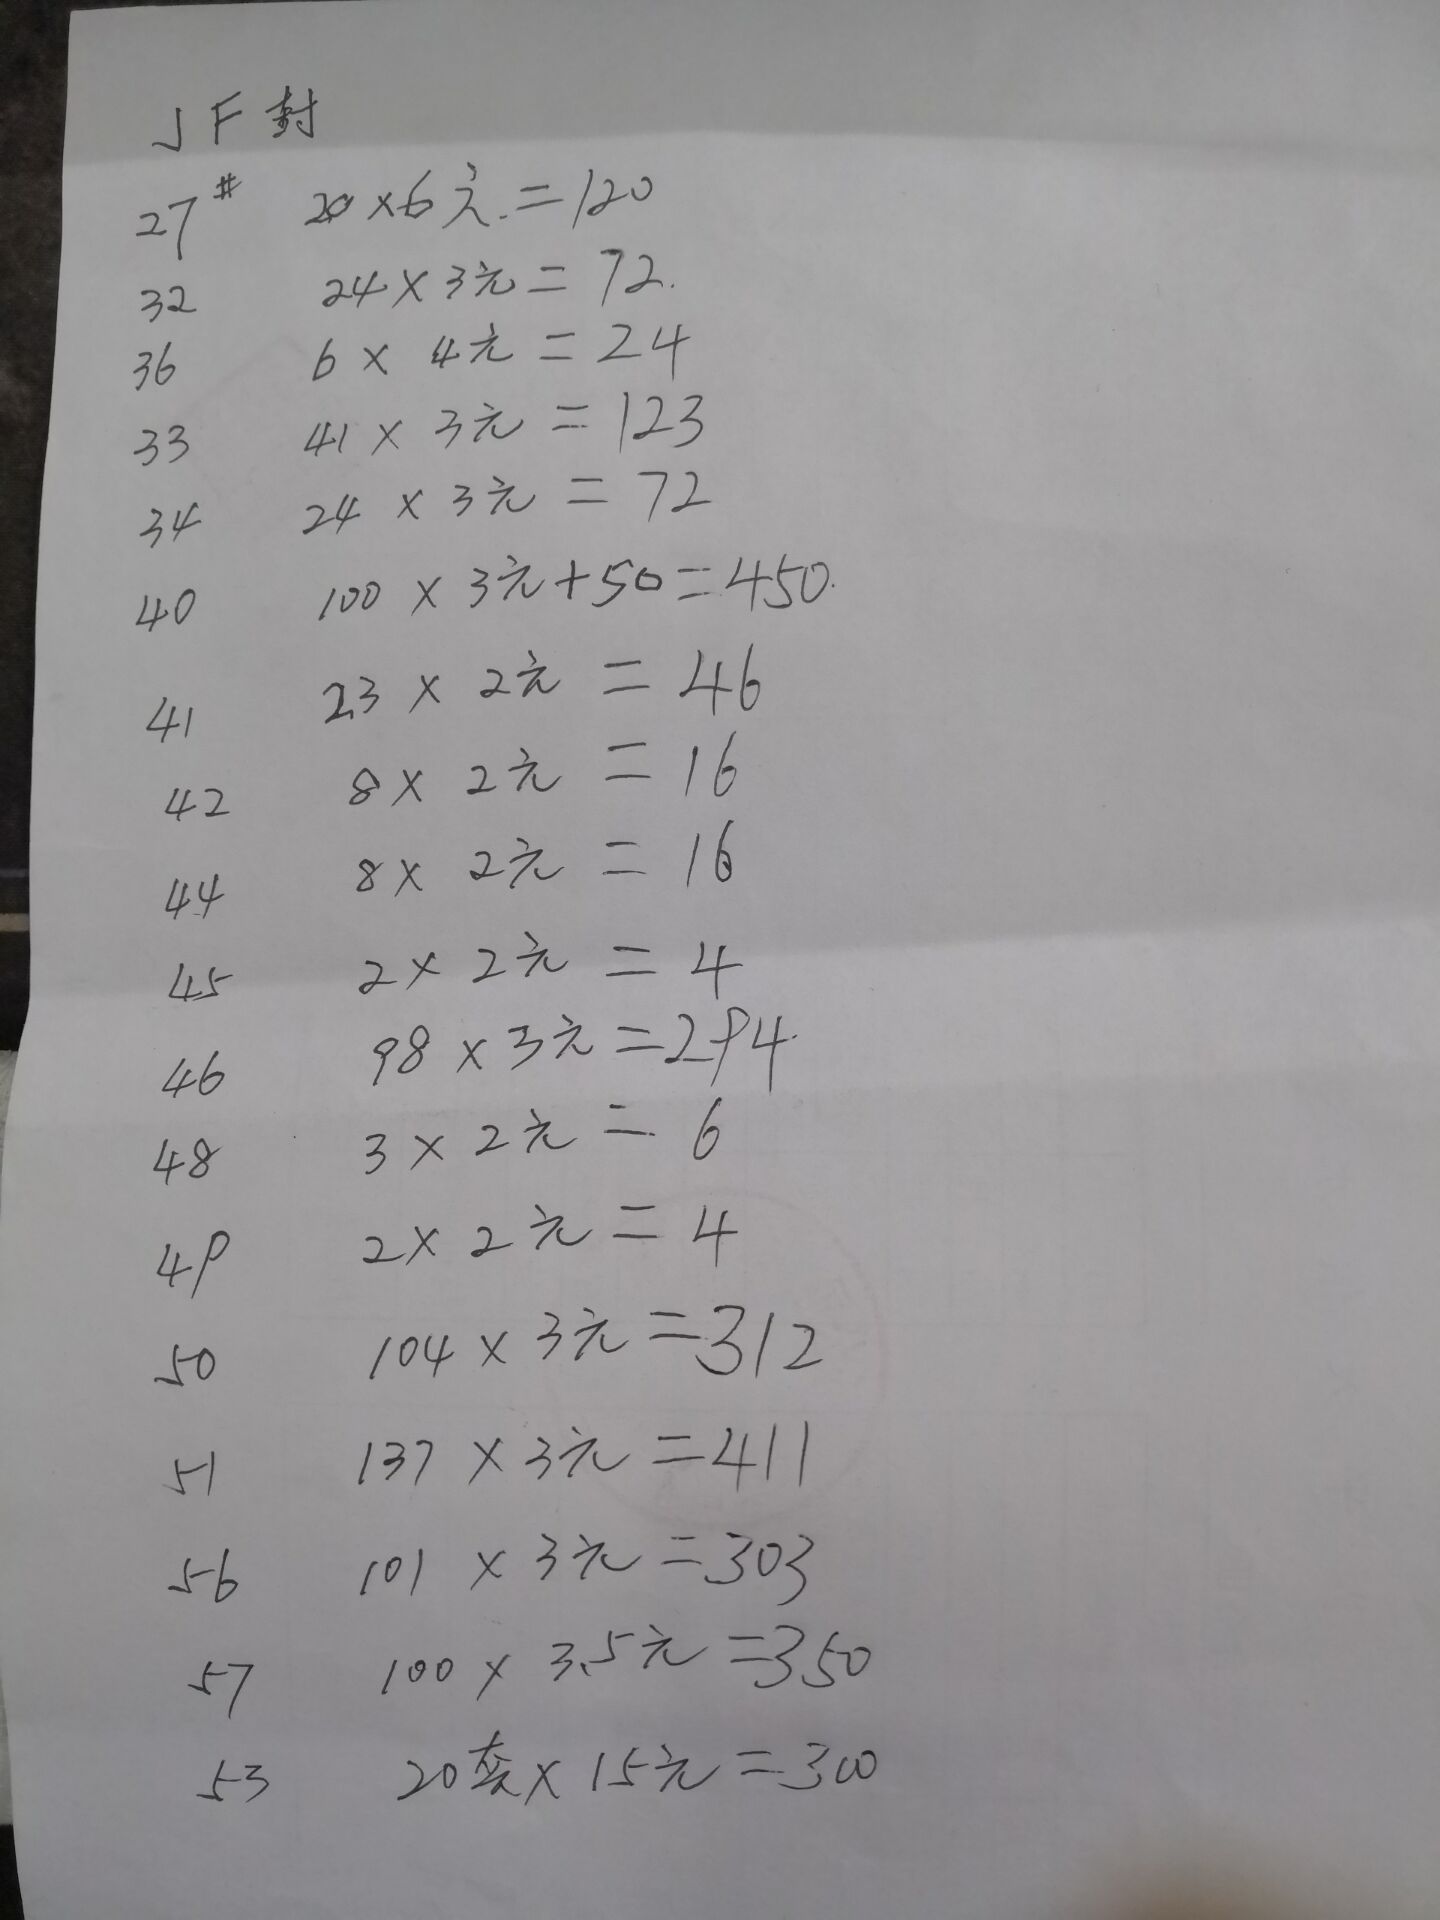 JF封
27# 20×6元=120
32 24×3元=72.
36 6×4元=24
33 41×3元=123
34 24×3元=72
40 100×3元+50=450.
41 23×2元=46
42 8×2元=16
44 8×2元=16
45 2×2元=4
46 98×3元=294.
48 3×2元=6
49 2×2元=4
50 104×3元=312
51 137×3元=411
56 101×3元=303
57 100×3.5元=350
53 20套×15元=300